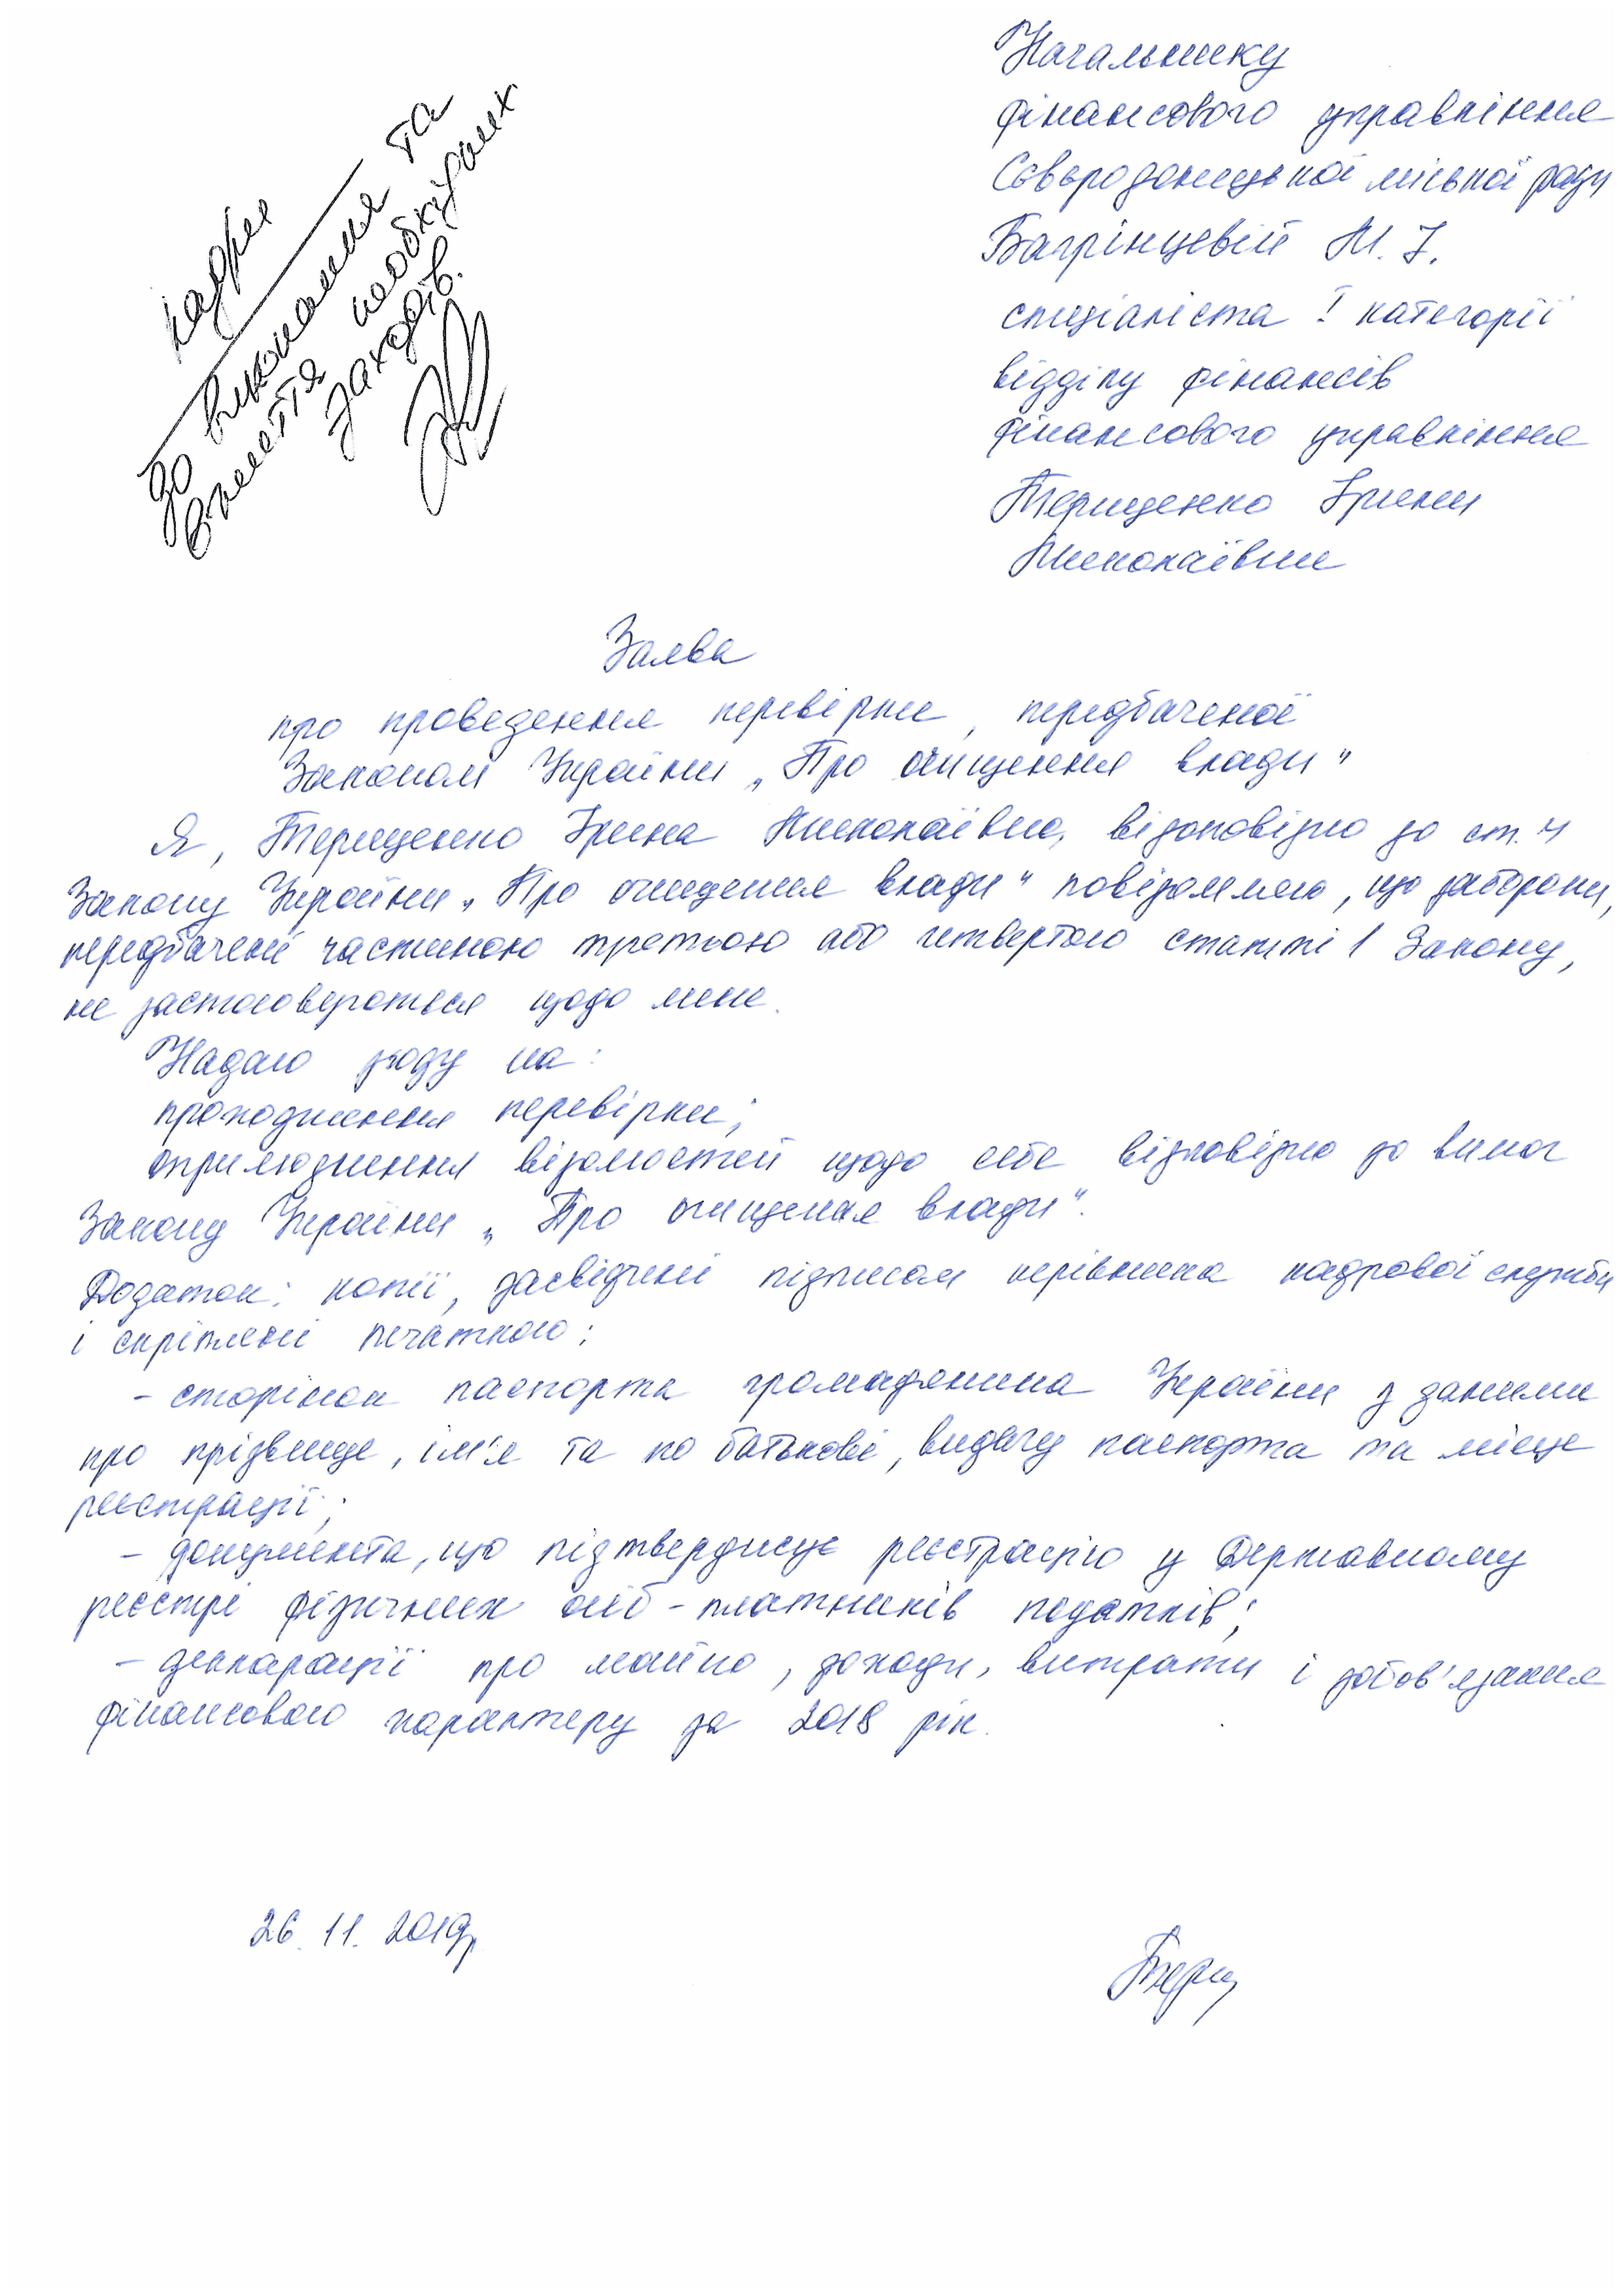 Начальнику
фінансового управління
Сєвєродонецької міської ради
Багрінцевій М. І.
спеціаліста І категорії
відділу фінансів
фінансового управління
Терещенко Ірини
Миколаївни
кадри
до виконання та
вжиття необхідних
заходів.
Заява
про проведення перевірки, передбаченої
Законом України „Про очищення влади"
Я, Терещенко Ірина Миколаївна, відповідно до ст. 4
Закону України „Про очищення влади" повідомляю, що заборони,
передбачені частиною третьою або четвертою статті 1 Закону,
не застосовуються щодо мене.
Надаю згоду на:
проходження перевірки;
оприлюднення відомостей щодо себе відповідно до вимог
Закону України „Про очищення влади".
Додаток: копії, засвідчені підписом керівника кадрової служби
і скріплені печаткою:
- сторінок паспорта громадянина України з даними
про прізвище, ім'я та по батькові, видачу паспорта та місце
реєстрації;
- документа, що підтверджує реєстрацію у Державному
реєстрі фізичних осіб - платників податків;
- декларації про майно, доходи, витрати і зобов'язання
фінансового характеру за 2018 рік.
26. 11. 2019р